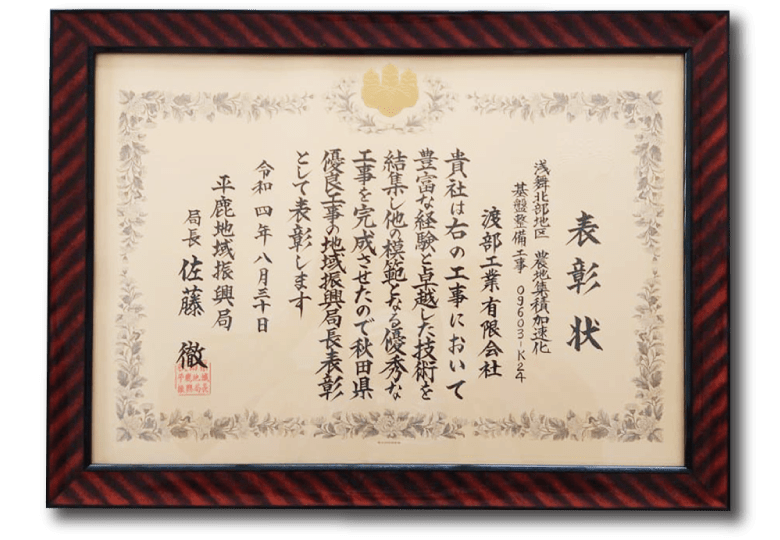 表彰状
浅舞北部地区 農地集積加速化
基盤整備工事 09603-K24
渡部工業有限会社
貴社は右の工事において
豊富な経験と卓越した技術を
結集し他の模範となる優秀な
工事を完成させたので秋田県
優良工事の地域振興局長表彰
として表彰します
令和四年八月三十日
平鹿地域振興局
局長 佐藤 徹